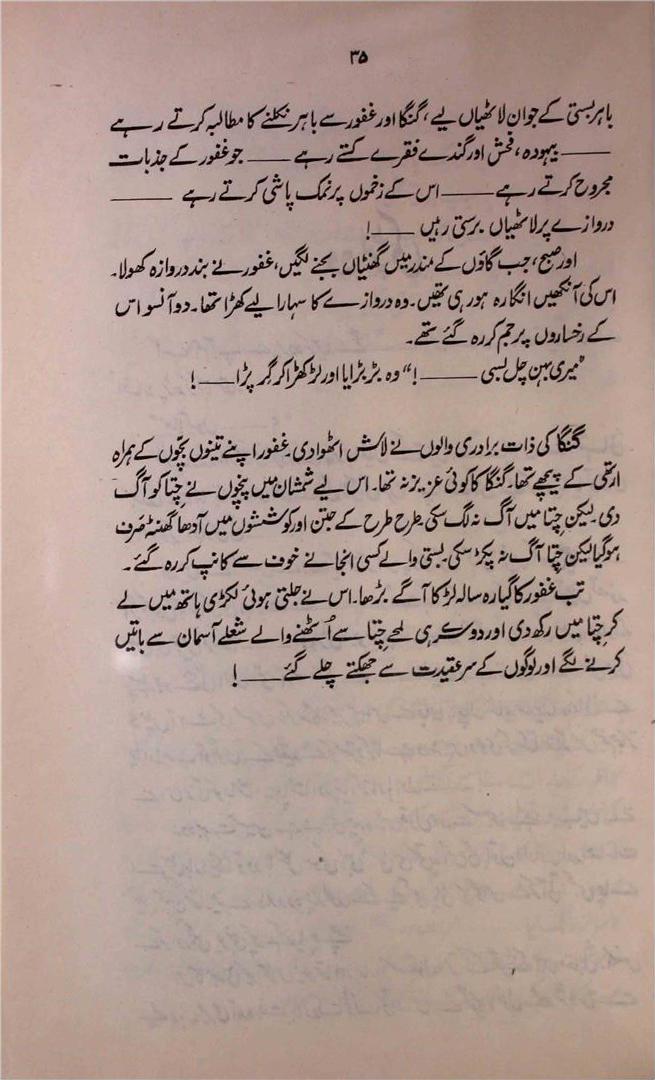 ۳۵
باہر بستی کے جوان لاٹھیاں لیے، گنگا اور غفور سے باہر نکلنے کا مطالبہ کرتے رہے
——— بیہودہ، فحش اور گندے فقرے کستے رہے ——— جو غفور کے جذبات
مجروح کرتے رہے ——— اس کے زخموں پر نمک پاشی کرتے رہے ———
دروازے پر لاٹھیاں برستی رہیں ———!
اور صبح، جب گاؤں کے مندر میں گھنٹیاں بجنے لگیں، غفور نے بند دروازہ کھولا۔
اس کی آنکھیں انگارہ ہو رہی تھیں۔ وہ دروازے کا سہارا لیے کھڑا تھا۔ دو آنسو اس
کے رخساروں پر جم کر رہ گئے تھے۔
"میری بہن چل بسی ———!" وہ بڑبڑایا اور لڑکھڑا کر گر پڑا ———!
گنگا کی ذات برادری والوں نے لاش اٹھوا دی۔ غفور اپنے تینوں بچّوں کے ہمراہ
ارتھی کے پیچھے تھا۔ گنگا کا کوئی عزیز نہ تھا۔ اس لیے شمشان میں پنچوں نے چِتا کو آگ
دی۔ لیکن چِتا میں آگ نہ لگ سکی۔ طرح طرح کے جتن اور کوششوں میں آدھا گھنٹہ صَرف
ہو گیا لیکن چِتا آگ نہ پکڑ سکی۔ بستی والے کسی انجانے خوف سے کانپ کر رہ گئے۔
تب غفور کا گیارہ سالہ لڑکا آگے بڑھا۔ اس نے جلتی ہوئی لکڑی ہاتھ میں لے
کر چِتا میں رکھ دی اور دوسرے ہی لمحے چِتا سے اُٹھنے والے شعلے آسمان سے باتیں
کرنے لگے اور لوگوں کے سر عقیدت سے جھکتے چلے گئے ———!